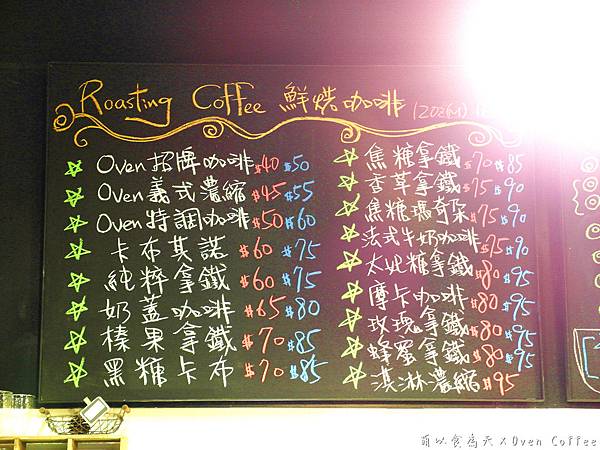 Roasting Coffee 鮮烘咖啡
Oven招牌咖啡 $40 $50
Oven義式濃縮 $45 $55
Oven特調咖啡 $50 $60
卡布其諾 $60 $75
純粹拿鐵 $60 $75
奶蓋咖啡 $65 $80
榛果拿鐵 $70 $85
黑糖卡布 $70 $85
焦糖拿鐵 $70 $85
香草拿鐵 $75 $90
焦糖瑪奇朵 $75 $90
法式牛奶咖啡 $75 $90
太妃糖拿鐵 $80 $95
摩卡咖啡 $80 $95
玫瑰拿鐵 $80 $95
蜂蜜拿鐵 $80 $95
淇淋濃縮 $95
萌以食為天 X Oven Coffee